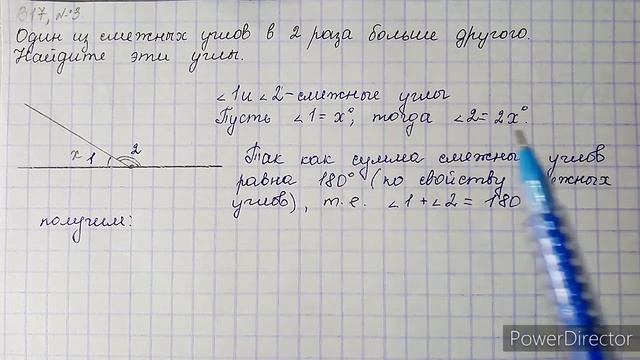 В17, №3.
Один из смежных углов в 2 раза больше другого.
Найдите эти углы.
∠1 и ∠2 - смежные углы
Пусть ∠1 = x°, тогда ∠2 = 2x°.
x 1 2
Так как сумма смежных углов
равна 180° (по свойству смежных
углов), т.е. ∠1 + ∠2 = 180
получим:
PowerDirector